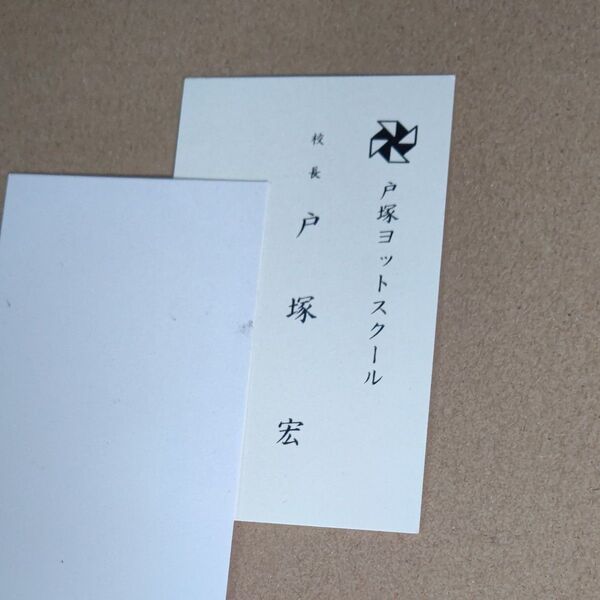 戸塚ヨットスクール
校長
戸塚宏